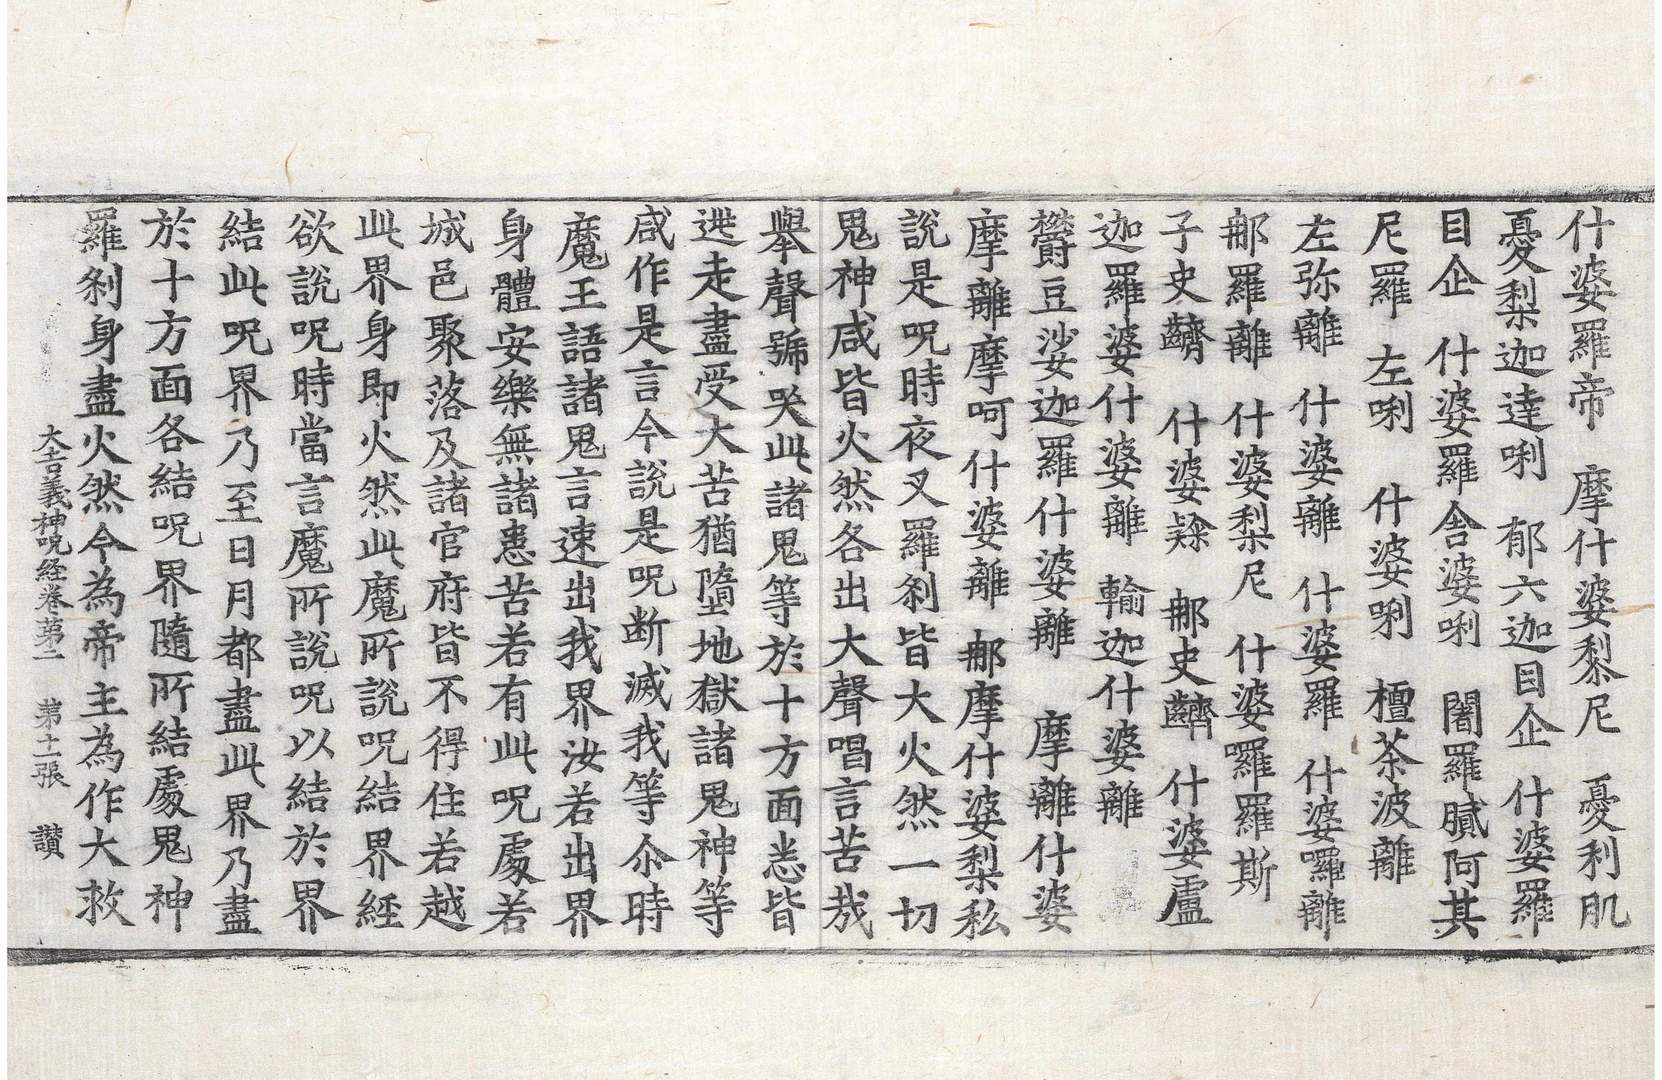 什婆羅帝　摩什婆黎尼　憂利肌
憂梨迦達唎　郁六迦目企　什婆羅
目企　什婆羅舍婆唎　闍羅膩阿其
尼羅　左唎　什婆唎　檀茶波離
左弥離　什婆離　什婆羅　什婆囉離
那羅離　什婆梨尼　什婆囉羅斯
子史齎　什婆　那史齎　什婆盧
迦羅婆什婆離　輸迦什婆離
欝豆娑迦羅什婆離　摩離什婆
摩離摩呵什婆離　那摩什婆梨私
說是呪時夜叉羅刹皆大火然一切
鬼神咸皆火然各出大聲唱言苦哉
舉聲號哭此諸鬼等於十方面悉皆
迸走盡受大苦猶墮地獄諸鬼神等
咸作是言今說是呪断滅我等尒時
魔王語諸鬼言速出我界汝若出界
身體安樂無諸患苦若有此呪處若
城邑聚落及諸官府皆不得住若越
此界身即火然此魔所說呪結界経
欲說呪時當言魔所說呪以結於界
結此呪界乃至日月都盡此界乃盡
於十方面各結呪界隨所結處鬼神
羅刹身盡火然今為帝主為作大救
大吉義神呪経卷苐二　苐十二張　讃